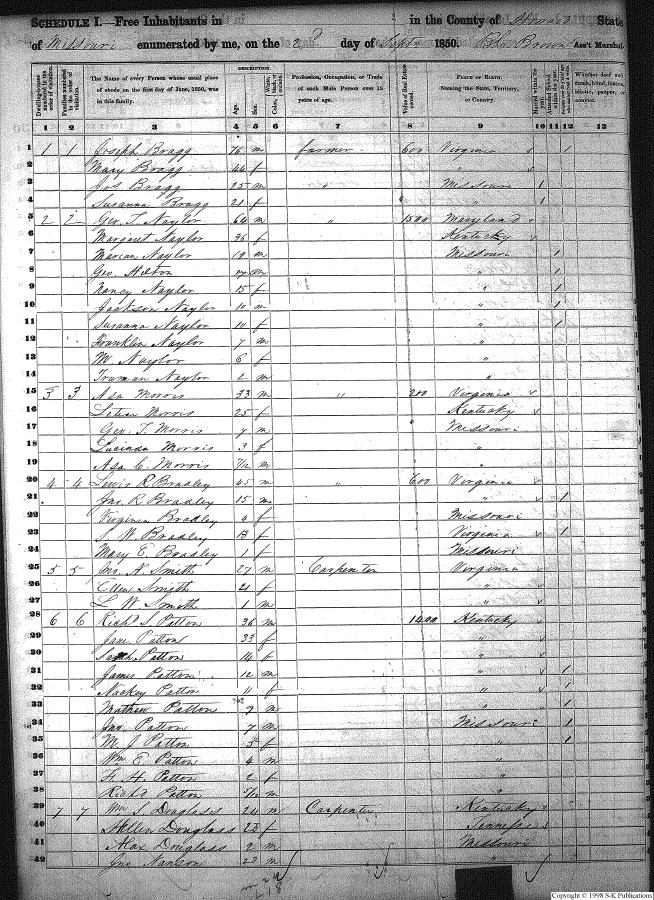 SCHEDULE I.—Free Inhabitants in in the County of Howard State
of Missouri enumerated by me, on the 2d day of Septr 1850. Brown Ass't Marshal.
Dwelling-houses numbered in the order of visitation.
Families numbered in the order of visitation.
The Name of every Person whose usual place of abode on the first day of June, 1850, was in this family.
DESCRIPTION.
Age.
Sex.
Color, White, black, or mulatto.
Profession, Occupation, or Trade of each Male Person over 15 years of age.
Value of Real Estate owned.
PLACE OF BIRTH. Naming the State, Territory, or Country.
Married within the year.
Attended School within the year.
Whether deaf and dumb, blind, insane, idiotic, pauper, or convict.
1 2 3 4 5 6 7 8 9 10 11 12 13
1 1 1 Joseph Bragg 76 m farmer 600 Virginia 1
2 Mary Bragg 44 f
3 Jos Bragg 25 m " Missouri 1
4 Susanna Bragg 21 f " 1
5 2 2 Geo. T. Naylor 64 m " 1500 Maryland
6 Margaret Naylor 36 f Kentucky
7 Marian Naylor 19 m Missouri 1
8 Geo. Hilton m " 1
9 Nancy Naylor 15 f " 1
10 Jackson Naylor 10 m " 1
11 Susanna Naylor 10 f " 1
12 Franklin Naylor 7 m "
13 M. Naylor 6 f "
14 Truman Naylor 2 m "
15 3 3 Asa Morris 33 m " 200 Virginia
16 Morris 25 f Kentucky
17 Geo. T. Morris 7 m Missouri
18 Lucinda Morris 3 f "
19 Asa C. Morris 7/12 m "
20 4 4 Lewis R Bradley 45 m " 600 Virginia
21 Jno. R Bradley 15 m " 1
22 Virginia Bradley 4 f Missouri
23 S. W. Bradley 13 f Virginia 1
24 Mary E. Bradley 1 f Missouri
25 5 5 Jno. N. Smith 27 m Carpenter Virginia
26 Ellen Smith 21 f "
27 L W Smith 1 m "
28 6 6 Richd S Patton 36 m 1400 Kentucky
29 Jane Patton 33 f "
30 Sarah Patton 14 f "
31 James Patton 12 m " 1
32 Patton 11 f " 1
33 Mathew Patton 9 m " 1
34 Jno. Patton 7 m Missouri 1
35 M. J. Patton 5 f " 1
36 Wm E. Patton 4 m "
37 H. Patton 2 f "
38 Richd Patton 7/12 m "
39 7 7 Wm S. Douglass 24 m Carpenter Kentucky
40 Douglass 23 f Tennessee
41 Alax Douglass 2 m Missouri
42 Jno 23 m "
Copyright © 1998 S-K Publications